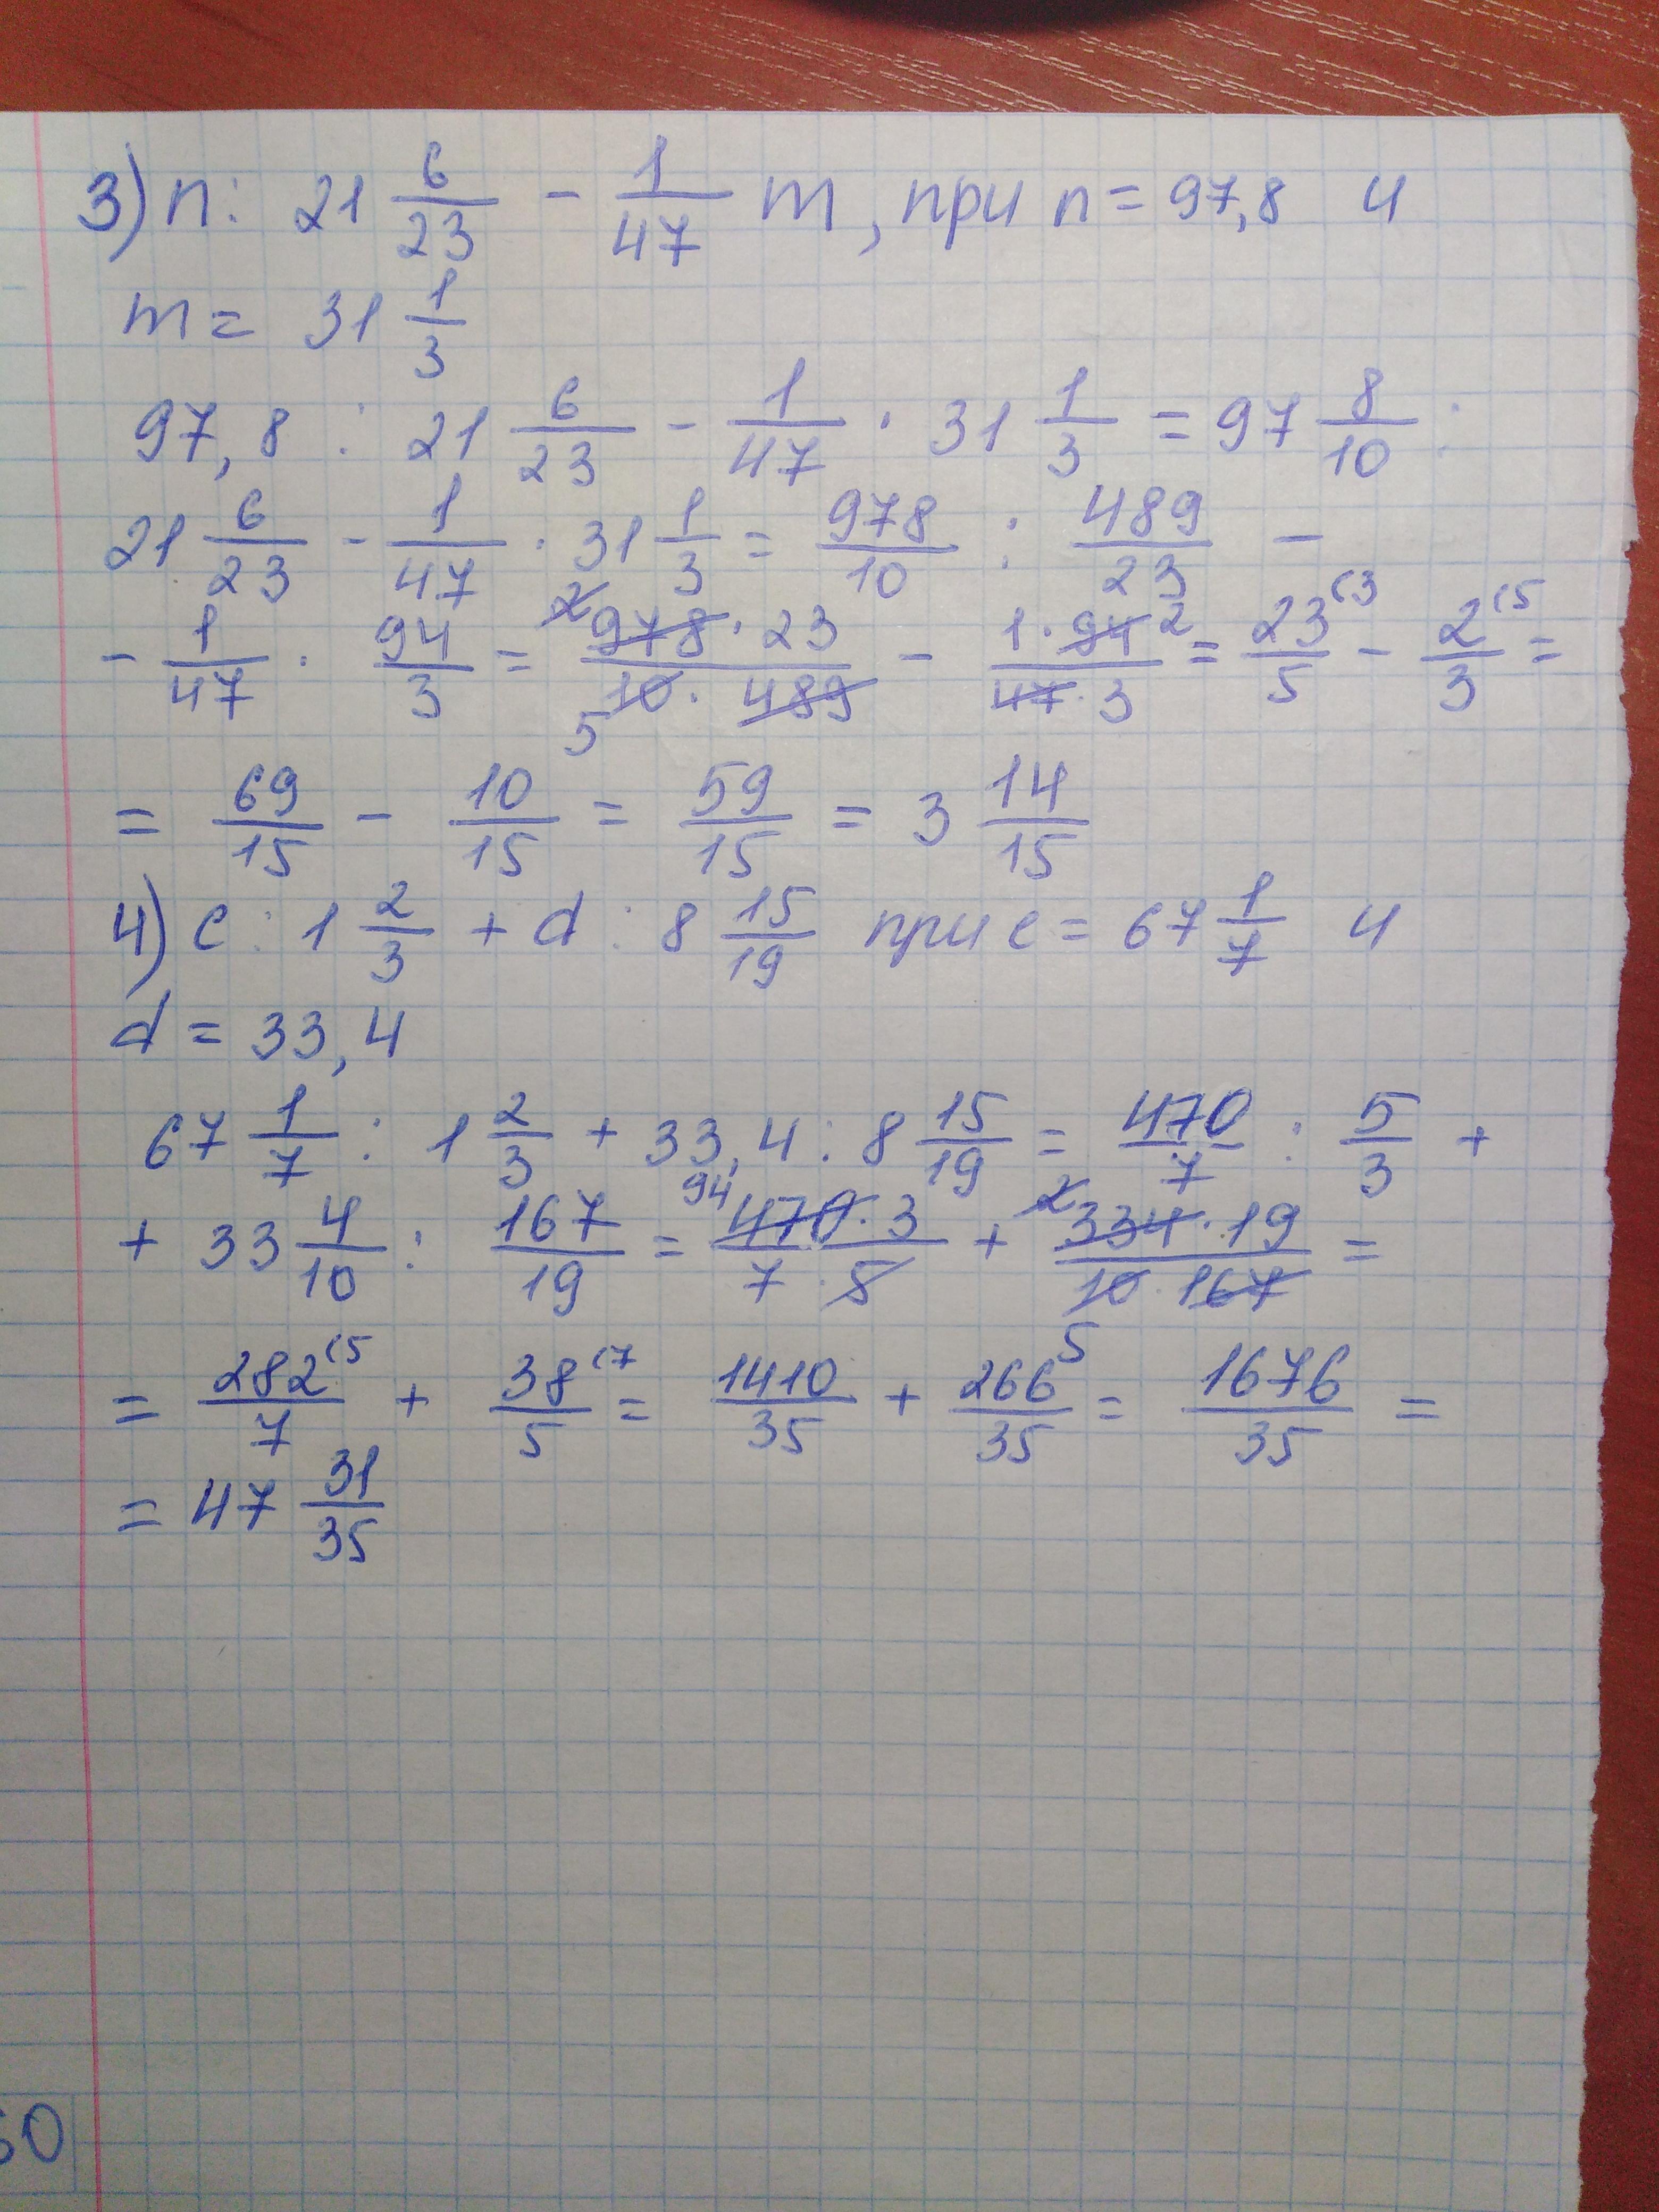 3) n : 21 6/23 - 1/47 m, при n = 97,8 и
m = 31 1/3
97,8 : 21 6/23 - 1/47 · 31 1/3 = 97 8/10 :
21 6/23 - 1/47 · 31 1/3 = 978/10 : 489/23 -
- 1/47 · 94/3 = 2 978 · 23 / 5 10 · 489 - 1 · 94 2 / 47 · 3 = 23/5 (3 - 2/3 (5 =
= 69/15 - 10/15 = 59/15 = 3 14/15
4) c : 1 2/3 + d : 8 15/19 при c = 67 1/7 и
d = 33,4
67 1/7 : 1 2/3 + 33,4 : 8 15/19 = 470/7 : 5/3 +
+ 33 4/10 : 167/19 = 94 470 · 3 / 7 · 5 + 2 334 · 19 / 10 · 167 5 =
= 282/7 (5 + 38/5 (7 = 1410/35 + 266/35 = 1676/35 =
= 47 31/35
50